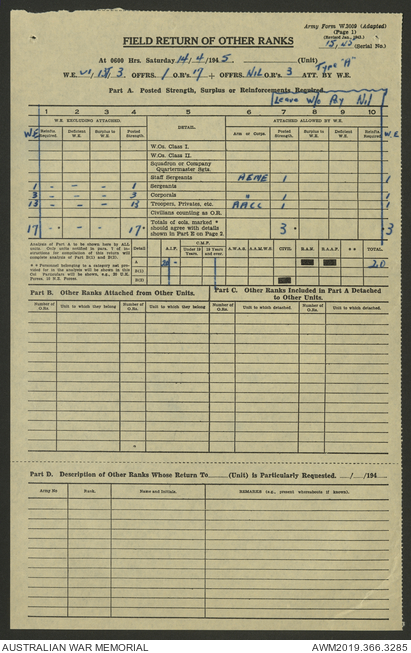 Army Form W.3009 (Adapted)
(Page 1)
(Revised Jan., 1943.)
(Serial No.)
FIELD RETURN OF OTHER RANKS
At 0600 Hrs. Saturday 14/4/1945 (Unit)
Type "A"
W.E. VI, 1 3. OFFRS. 1 O.R's. 17 + OFFRS. NIL O.R's. 3 ATT. BY W.E.
Part A. Posted Strength, Surplus or Reinforcements Required
Leave W/o Pay Nil
1 2 3 4 5 6 7 8 9 10
W.E. W.E. EXCLUDING ATTACHED. DETAIL. ATTACHED ALLOWED BY W.E. W.E.
Reinfts. Required. Deficient W.E. Surplus to W.E. Posted Strength. Arm or Corps. Posted Strength. Deficient W.E. Surplus to W.E. Reinfts. Required.
W.Os. Class I.
W.Os. Class II.
Squadron or Company Quartermaster Sgts.
Staff Sergeants AEME 1 1
1 - - - 1 Sergeants
3 - - - 3 Corporals " 1 1
13 - - - 13 Troopers, Privates, etc. AACC 1 1
Civilians counting as O.R.
17 - - - 17 Totals of cols. marked * should agree with details shown in Part E on Page 2. 3 3
Analysis of Part A to be shown here by ALL units.
Detail A.I.F. C.M.F. Under 19 Years. 19 Years and over. A.W.A.S. A.A.M.W.S. CIVIL R.A.N. R.A.A.F. ** TOTAL.
A 20 - 20
B(1)
B(2)
Part B. Other Ranks Attached from Other Units.
Part C. Other Ranks Included in Part A Detached to Other Units.
Number of O.Rs. Unit to which they belong Number of O.Rs. Unit to which they belong Number of O.Rs. Unit to which detached. Number of O.Rs. Unit to which detached.
Part D. Description of Other Ranks Whose Return To (Unit) is Particularly Requested. / /194
Army No Rank. Name and Initials. REMARKS (e.g., present whereabouts if known).
AUSTRALIAN WAR MEMORIAL AWM2019.366.3285